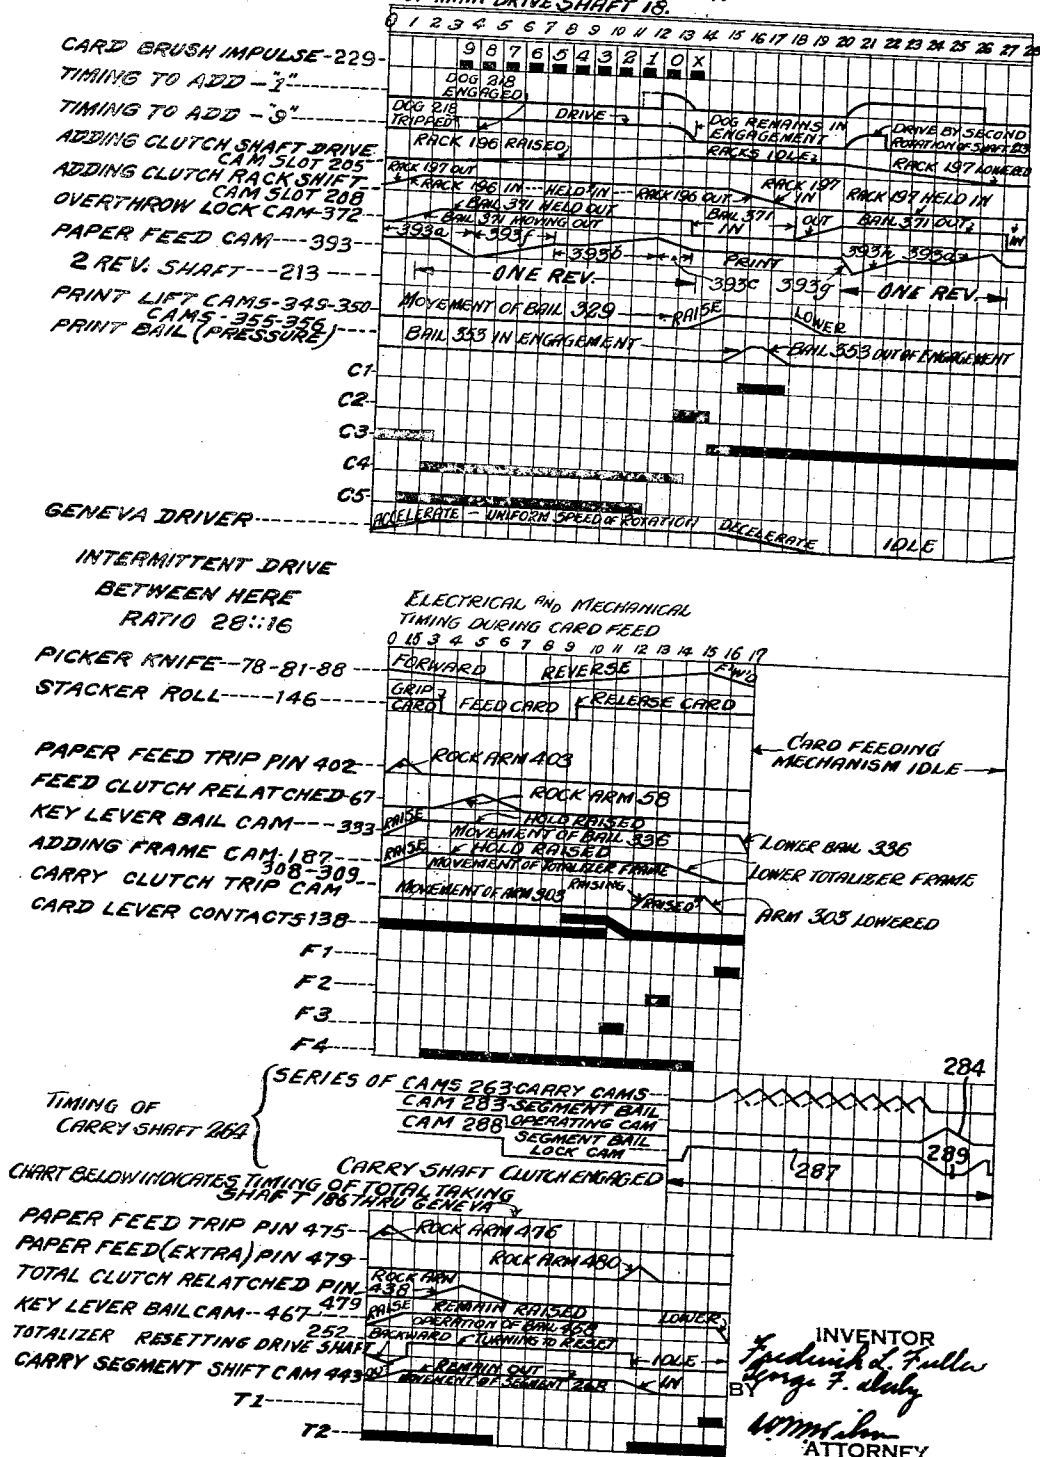 MAIN DRIVE SHAFT 18.
0 1 2 3 4 5 6 7 8 9 10 11 12 13 14 15 16 17 18 19 20 21 22 23 24 25 26 27 28
CARD BRUSH IMPULSE-229-
9 8 7 6 5 4 3 2 1 0 X
TIMING TO ADD -"1"
DOG 218 ENGAGED
TIMING TO ADD -"9"
DOG 218 TRIPPED
DRIVE
DOG REMAINS IN ENGAGEMENT
DRIVE BY SECOND ROTATION OF SHAFT 213
ADDING CLUTCH SHAFT DRIVE
CAM SLOT 205
RACK 196 RAISED
RACKS IDLE
RACK 197 LOWERED
ADDING CLUTCH RACK SHIFT
CAM SLOT 208
RACK 197 OUT
RACK 196 IN---HELD IN---RACK 196 OUT
RACK 197 IN
RACK 197 HELD IN
OVERTHROW LOCK CAM-372
BAIL 371 HELD OUT
BAIL 371 MOVING OUT
BAIL 371 IN
OUT
BAIL 371 OUT
IN
PAPER FEED CAM----393
393a 393f 393b 393c PRINT 393g 393h 393a
2 REV. SHAFT---213
ONE REV.
ONE REV.
PRINT LIFT CAMS-349-350
MOVEMENT OF BAIL 329
RAISE
LOWER
CAMS-355-356
PRINT BAIL (PRESSURE)
BAIL 353 IN ENGAGEMENT
BAIL 353 OUT OF ENGAGEMENT
C1
C2
C3
C4
C5
GENEVA DRIVER
ACCELERATE - UNIFORM SPEED OF ROTATION
DECELERATE
IDLE
INTERMITTENT DRIVE
BETWEEN HERE
RATIO 28::16
ELECTRICAL AND MECHANICAL
TIMING DURING CARD FEED
0 1.5 3 4 5 6 7 8 9 10 11 12 13 14 15 16 17
PICKER KNIFE--78-81-88
FORWARD
REVERSE
F'W'D
STACKER ROLL-----146
GRIP CARD
FEED CARD
RELEASE CARD
CARD FEEDING
MECHANISM IDLE
PAPER FEED TRIP PIN 402
ROCK ARM 403
FEED CLUTCH RELATCHED-67
ROCK ARM 58
KEY LEVER BAIL CAM---393
RAISE
HOLD RAISED
MOVEMENT OF BAIL 336
LOWER BAIL 336
ADDING FRAME CAM-187
RAISE
HOLD RAISED
MOVEMENT OF TOTALIZER FRAME
LOWER TOTALIZER FRAME
308-309
CARRY CLUTCH TRIP CAM
MOVEMENT OF ARM 303
RAISING
RAISED
ARM 303 LOWERED
CARD LEVER CONTACTS 138
F1
F2
F3
F4
TIMING OF
CARRY SHAFT 264
SERIES OF CAMS 263-CARRY CAMS
CAM 283-SEGMENT BAIL OPERATING CAM
CAM 288 SEGMENT BAIL LOCK CAM
284
287
289
CARRY SHAFT CLUTCH ENGAGED
CHART BELOW INDICATES TIMING OF TOTAL TAKING
SHAFT 186 THRU GENEVA
PAPER FEED TRIP PIN 475
ROCK ARM 476
PAPER FEED (EXTRA) PIN 479
ROCK ARM 480
TOTAL CLUTCH RELATCHED PIN 479
ROCK ARM 438
KEY LEVER BAIL CAM--467
RAISE
REMAIN RAISED
OPERATION OF BAIL 468
LOWER
TOTALIZER RESETTING DRIVE SHAFT 252
BACKWARD
TURNING TO RESET
IDLE
CARRY SEGMENT SHIFT CAM 443
REMAIN OUT
MOVEMENT OF SEGMENT 268
IN
T1
T2
INVENTOR
Frederick L. Fuller
George F. Daly
BY
ATTORNEY